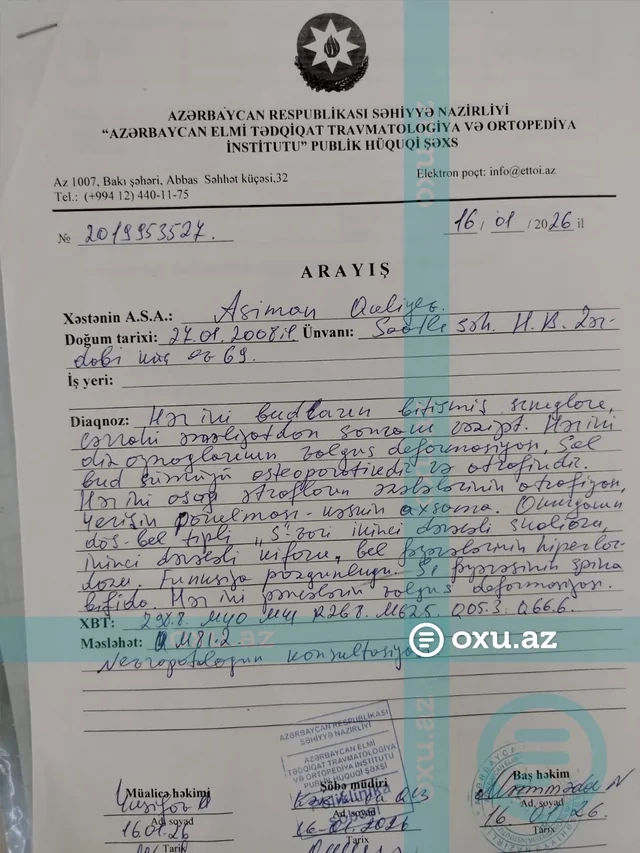 AZƏRBAYCAN RESPUBLİKASI SƏHİYYƏ NAZİRLİYİ
“AZƏRBAYCAN ELMİ TƏDQİQAT TRAVMATOLOGİYA VƏ ORTOPEDİYA
İNSTİTUTU” PUBLİK HÜQUQİ ŞƏXS
Az 1007, Bakı şəhəri, Abbas Səhhət küçəsi,32
Elektron poçt: info@ettoi.az
Tel.: (+994 12) 440-11-75
№ 2019953527.
16 / 01 / 2026 il
ARAYIŞ
Xəstənin A.S.A.: Asiman Quliyev
Doğum tarixi: 27.01.2008 il Ünvanı: Saatlı şəh. H.B. Zər-
dabi küç ev 69.
İş yeri:
Diaqnoz: Hər iki budların bitişmiş sınıqları,
cərrahi əməliyyatdan sonrakı vəziyyət. Hər iki
diz oynaqlarının valqus deformasiyası, Sol
bud sümüyü osteoporotikdir və atrofikdir.
Hər iki aşağı ətrafların əzələlərinin atrofiyası,
Yerişin pozulması - axsama. Onurğanın
döş-bel tipli „S"-vari ikinci dərəcəli skolioz,
ikinci dərəcəli kifozu, bel fəqərələrinin hiperlor-
dozu. Funksiya pozğunluğu. S1 fəqərəsinin spina
bifida. Hər iki pəncələrin valqus deformasiyası.
XBT: Z98.8. M40 M41 R26.8. M62.5. Q05.3. Q66.6.
Məsləhət: M81.2.
Nevropatoloqun konsultasiyası
oxu.az
oxu.az
AZƏRBAYCAN RESPUBLİKASI
SƏHİYYƏ NAZİRLİYİ
AZƏRBAYCAN ELMİ
TƏDQİQAT TRAVMATOLOGİYA
VƏ ORTOPEDİYA İNSTİTUTU
PUBLİK HÜQUQİ ŞƏXSİ
Poliklinika
Müalicə həkimi
Ad, soyad
16.01.26
Tarix
Şöbə müdiri
Ad, soyad
16-01-2026
Tarix
Baş həkim
Məmmədov N
Ad, soyad
16 01.26.
Tarix